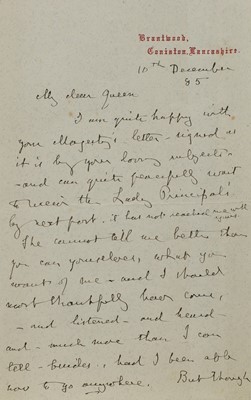 Brantwood,
Coniston, Lancashire.
10th December
85
My dear Queen
I am quite happy with
your Majesty's letter - signed as
it is by your loving subjects -
- and can quite peacefully wait
to receive the Lady Principal's
by next post. it has not reached me with yours.
She cannot tell me better than
you can yourselves, what you
want of me - and I should
most thankfully have come,
- and listened - and heard -
and - much more than I can
tell - besides, had I been able
now to go anywhere. But though